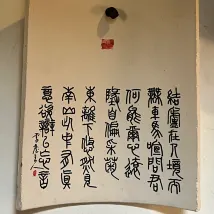 結廬在人境而
無車馬喧問君
何能爾心遠
地自偏采菊
東離下悠然見
南山此中有真
意欲辯已忘言